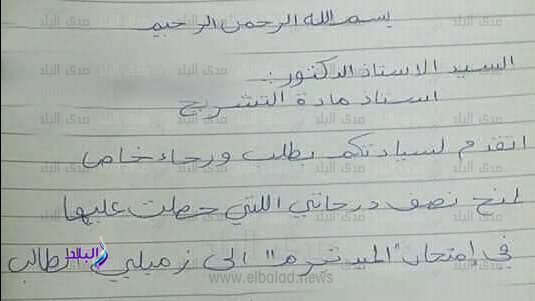 بسم الله الرحمن الرحيم
السيد الاستاذ الدكتور:
استاذ مادة التشريح
اتقدم لسيادتكم بطلب ورجاء خاص
لمنح نصف درجاتي اللتي حصلت عليها
في إمتحان "الميد ترم" الى زميلي الطالب
صدى البلد
www.elbalad.news